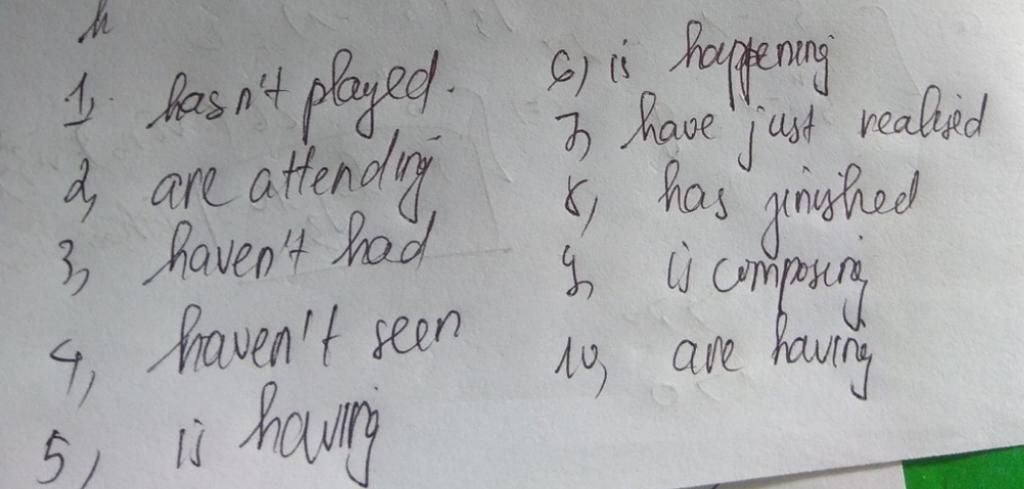 h
1, hasn't played.
2, are attending
3, haven't had
4, haven't seen
5, is having
6) is happening
7, have just realised
8, has finished
9, is composing
10, are having